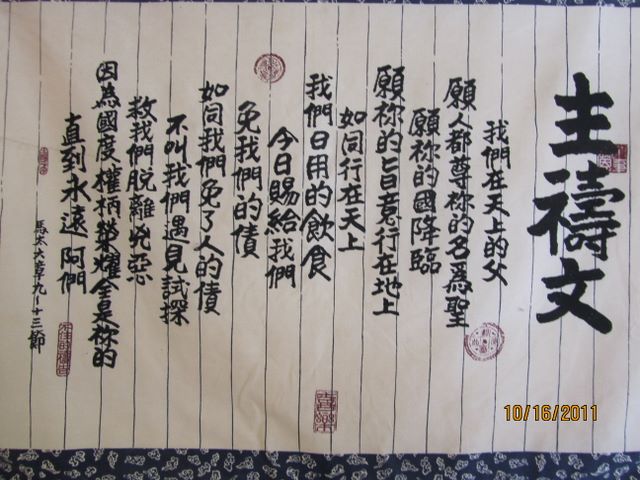 主禱文
我們在天上的父
願人都尊祢的名爲聖
願祢的國降臨
願祢的旨意行在地上
如同行在天上
我們日用的飲食
今日賜給我們
免我們的債
如同我們免了人的債
不叫我們遇見試探
救我們脫離兇惡
因為國度權柄榮耀全是祢的
直到永遠 阿們
馬太六章九~十三節
喜樂
10/16/2011